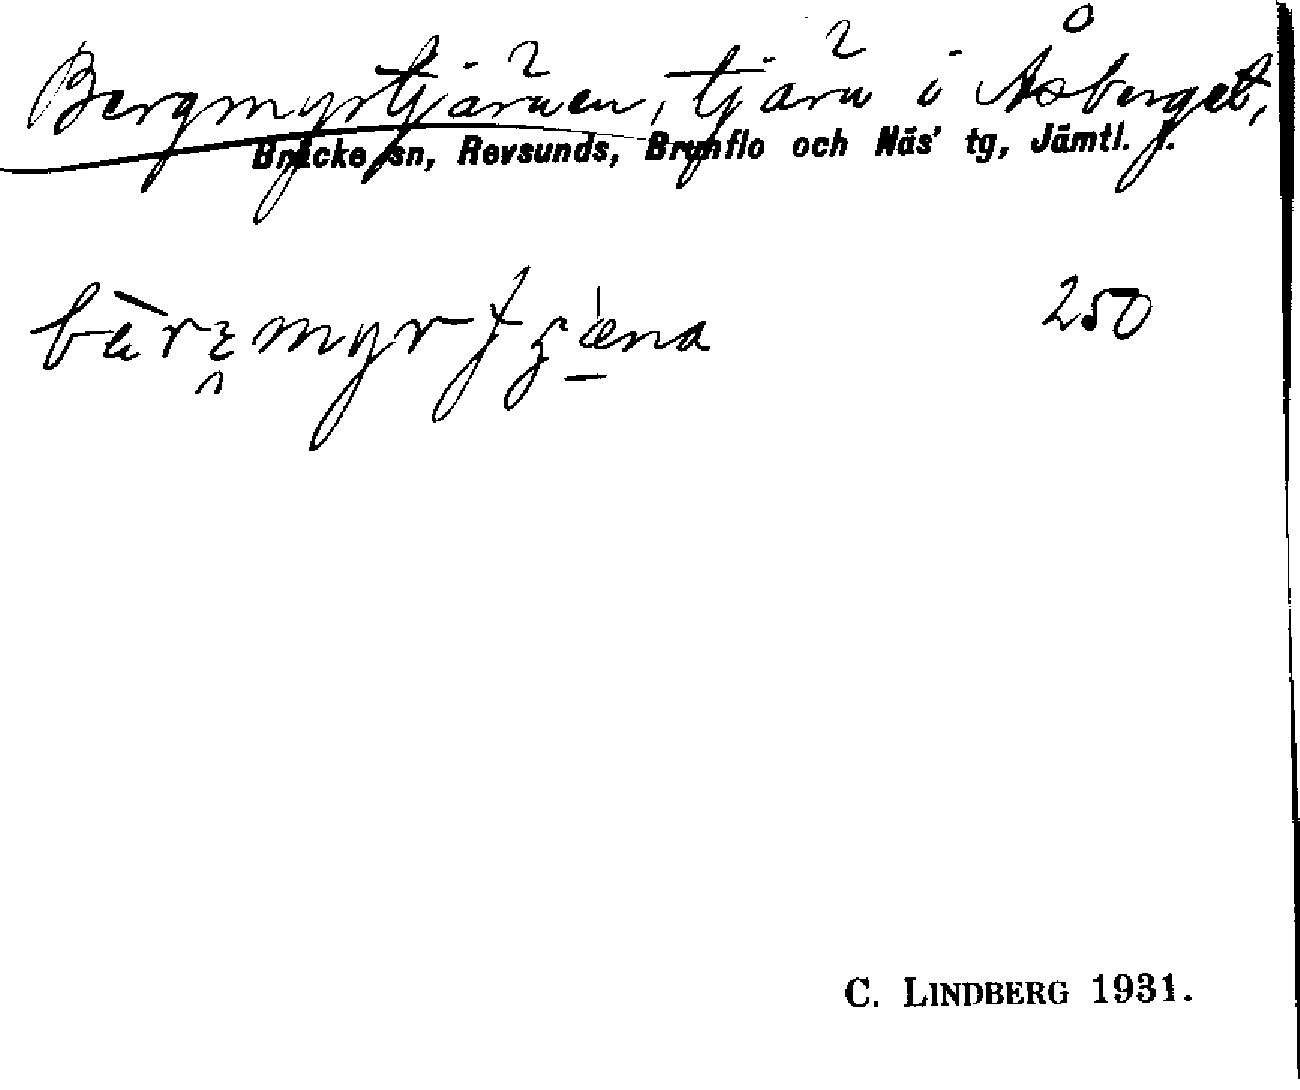 Bergmyrtjärnen, tjärn i Åsberget,
Bräcke sn, Revsunds, Brunflo och Näs' tg, Jämtl. l.
250
C. LINDBERG 1931.